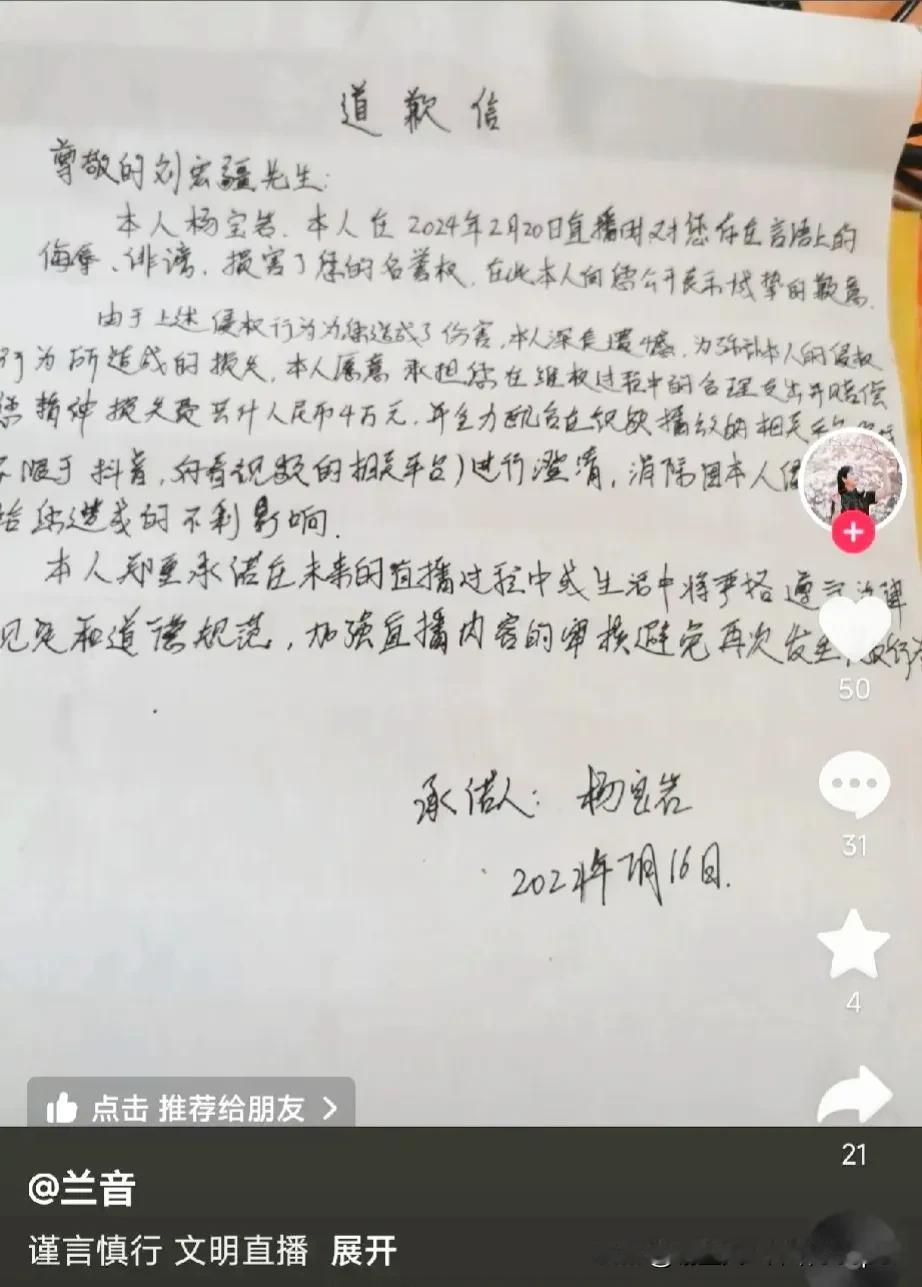 道歉信
尊敬的刘宏疆先生:
本人杨宝岩、本人在2024年2月20日直播时对您存在言语上的
侮辱、诽谤、损害了您的名誉权,在此本人向您公开表示诚挚的歉意.
由于上述侵权行为为您造成了伤害,本人深表遗憾,为弥补本人的侵权
行为所造成的损失,本人愿意承担您在维权过程中的合理支出并赔偿
您精神损失费共计人民币4万元.并全力配合在织欲播放的相关平台
不限于抖音,向看视频的相关平台)进行澄清,消除因本人
给您造成的不利影响.
本人郑重承诺在未来的直播过程中或生活中将严格遵守法律
和道德规范,加强直播内容的审核避免再次发生
承诺人:杨宝岩
2024年7月16日.
50
31
4
点击 推荐给朋友 >
21
@兰音
谨言慎行 文明直播 展开